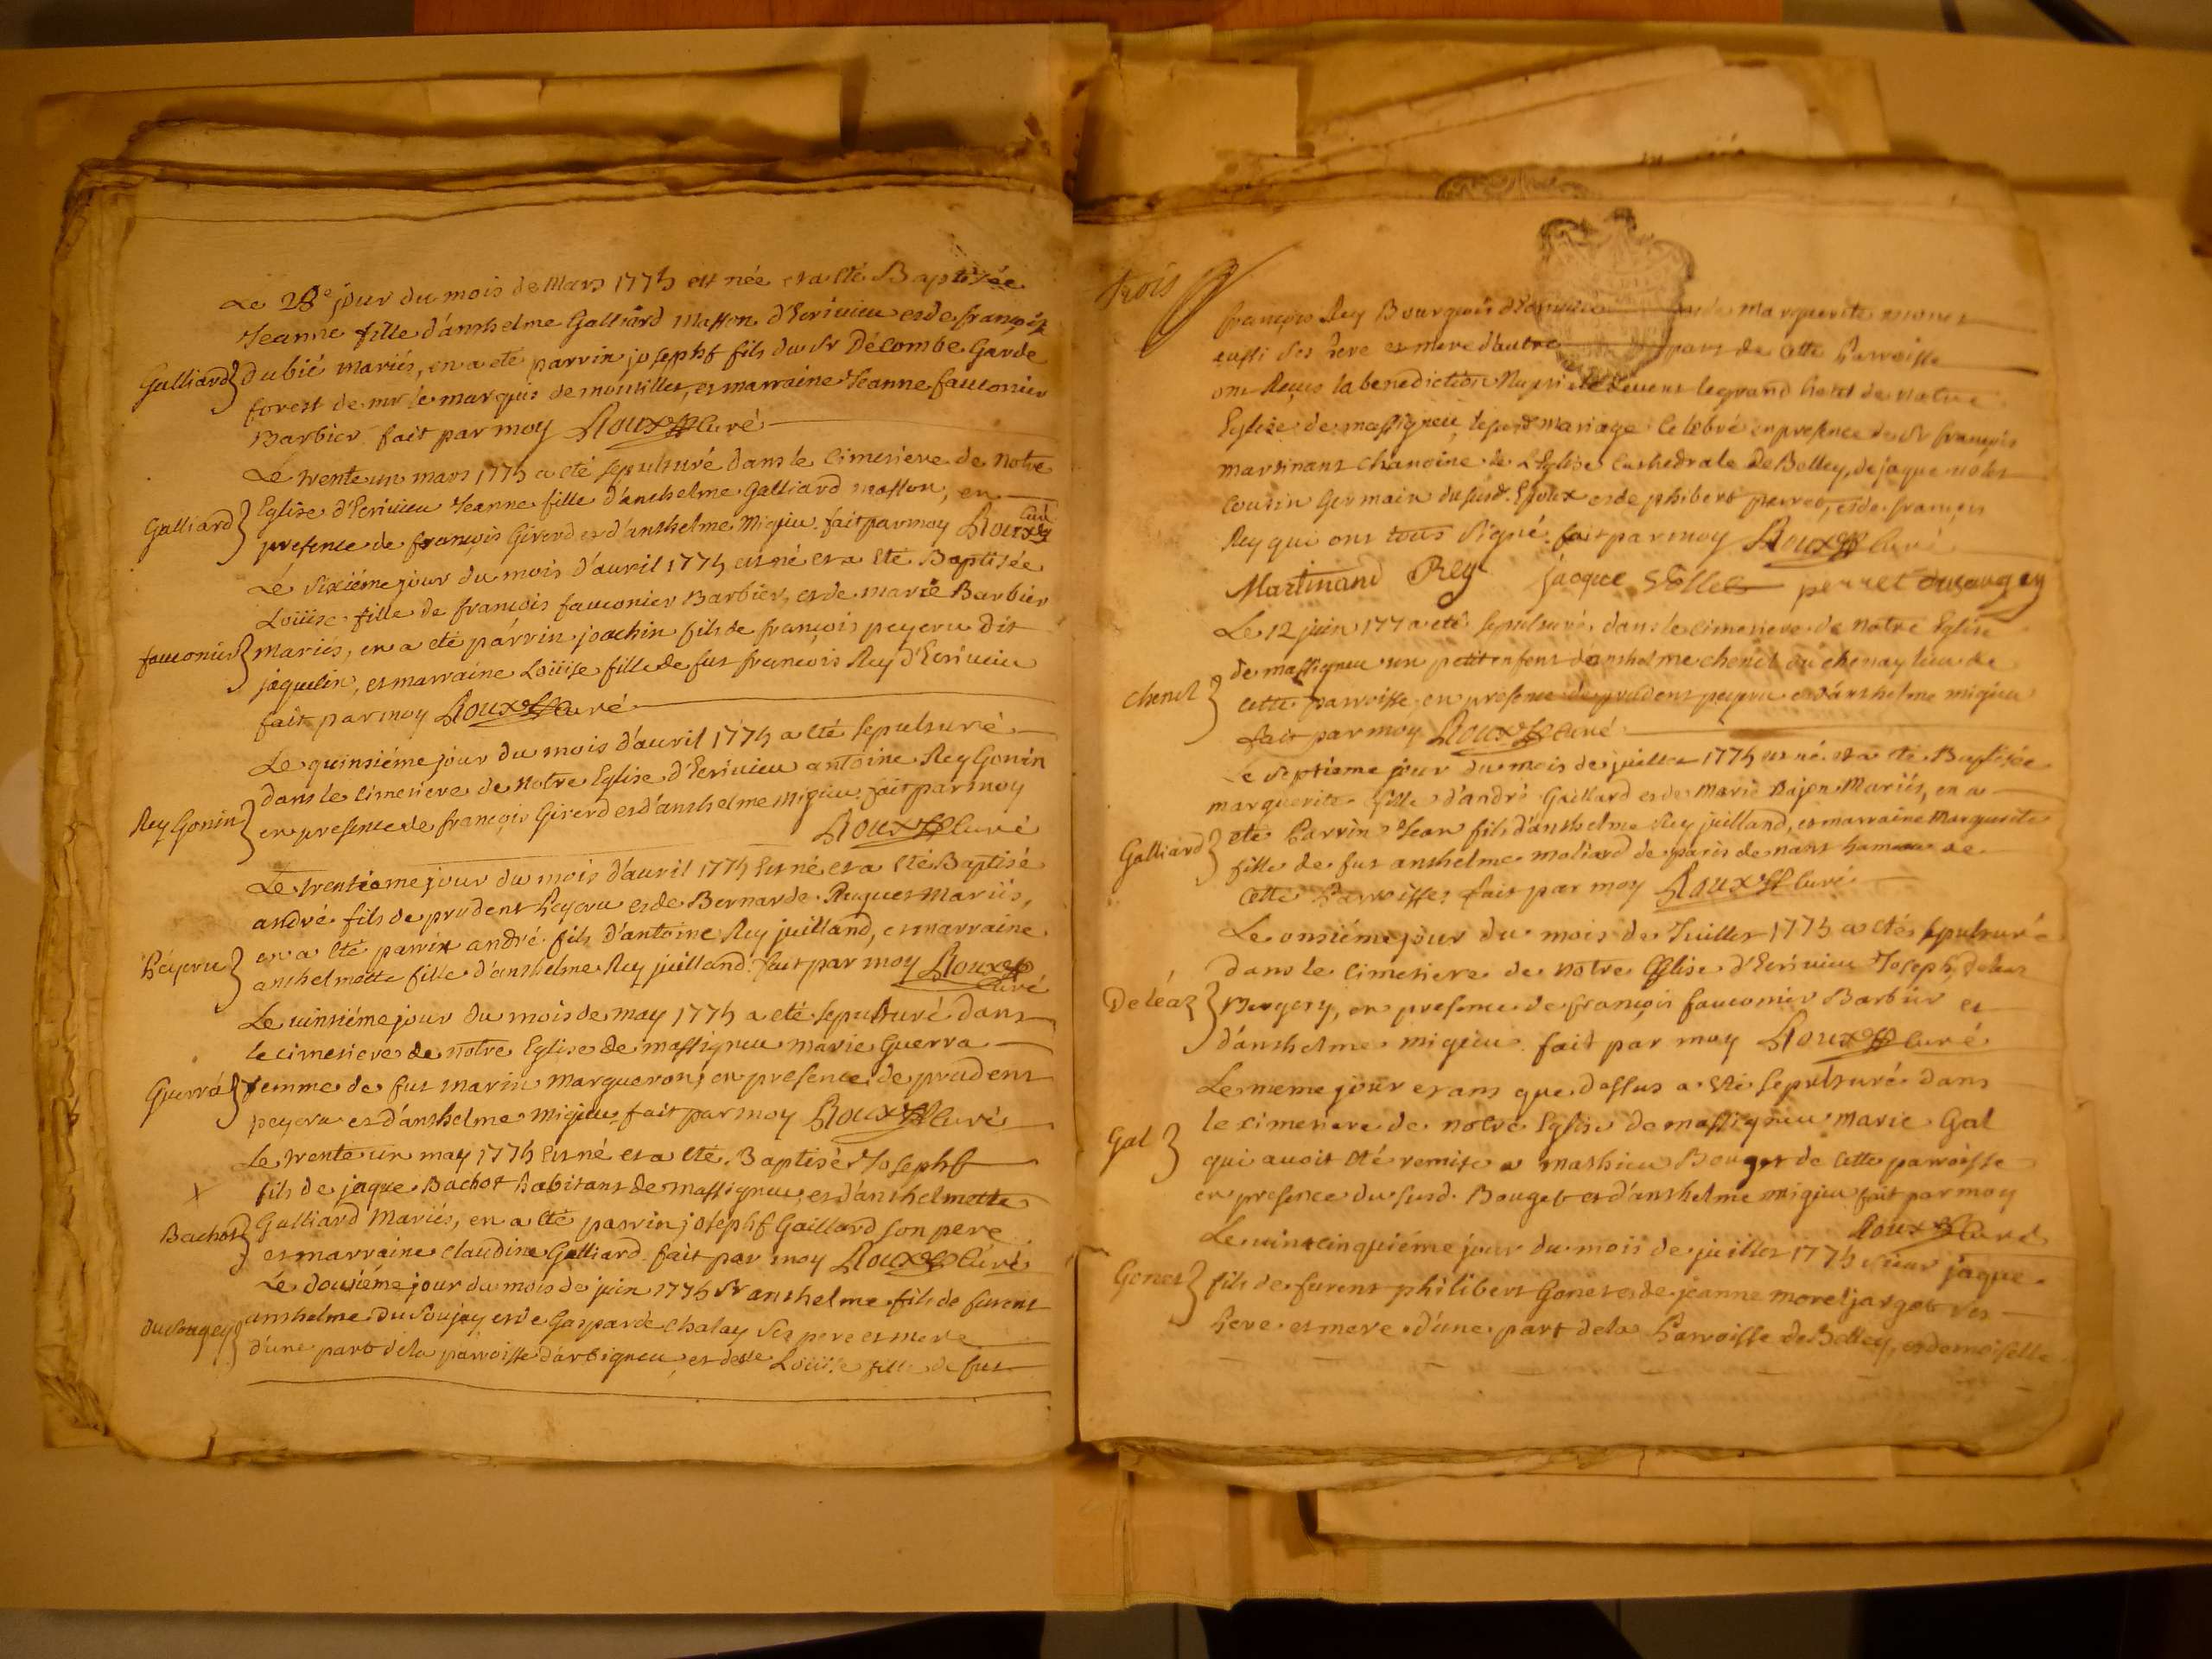 Le 28e jour du mois de Mars 1775 est née et a été Baptisée
Jeanne fille d'anthelme Galliard Masson d'Ecrivieu et de françoise
Galliard} dubié mariés, en a eté parrin josepht fils du Sr Décombe Garde
forest de mr le marquis de moutillet, et marraine Jeanne fauconier
Barbier fait par moy Roux curé
Le trente un mars 1775 a eté sepulturé dans le cimetiere de notre
Galliard} Eglise d'Ecrivieu Jeanne fille d'anthelme Galliard masson, en
presence de françois Girerd et d'anthelme Migieu. fait par moy Roux curé
Le sixiéme jour du mois d'avril 1775 est né et a eté Baptisée
Loüise fille de françois fauconier Barbier, et de marie Barbier
fauconier} mariés, en a eté parrin joachin fils de françois peyeru dit
jaquelin, et marraine Loüise fille de fut françois Rey d'Ecrivieu
fait par moy Roux curé
Le quinsiéme jour du mois d'avril 1775 a eté sepulturé
dans le cimetiere de notre Eglise d'Ecrivieu antoine Rey Gonin
Rey Gonin} en presence de françois Girerd et d'anthelme Migieu. fait par moy
Roux curé
Le trentieme jour du mois d'avril 1775 est né et a eté Baptisé
andré fils de prudent Peyeru et de Bernarde Ruguet Mariés,
Péyeru} en a eté parrin andré fils d'antoine Rey juilland, et marraine
anthelmette fille d'anthelme Rey juilland. fait par moy Roux curé
Le vinsiéme jour du mois de may 1775 a eté sepulturé dans
le cimetiere de notre Eglise de massigneu marie Guerra
Guerra} femme de fut marin Margueron, en presence de prudent
peyeru et d'anthelme migieu. fait par moy Roux curé
Le trente un may 1775 est né et a eté Baptisé Josepht
x fils de jaque Bachot habitant de massigneu et d'anthelmette
Bachot} Galliard Mariés, en a eté parrin josepht Gaillard son pere
et marraine claudine Galliard. fait par moy Roux curé
Le dousiéme jour du mois de juin 1775 Sr anthelme fils de furent
Dusougey} anthelme Du Soujey et de Gasparde chalay ses pere et mere
d'une part de la parroisse d'arbigneu, et delle Loüise fille de fut
trois
françois Rey Bourgeois d'Ecrivieu et de marguerite
aussi ses Pere et mere d'autre part de cette Parroisse
ont Reçus la benediction Nuptiale devent le grand hotel de notre
Eglise de massigneu, le susd mariage celebré en presence de Sr françois
martinant chanoine de L'Eglise Cathedrale De Belley, de jaque
cousin Germain du susd. Epoux et de phibert perret, et de françois
Rey qui ont tous signé. fait par moy Roux curé
Martinand Rey jacque perret dusaugey
Le 12 juin 177 a eté sepulturé dans le cimetiere de notre Eglise
de massigneu un petit enfent d'anthelme chenel du chenay lieu de
chenel} cette parroisse, en presence de prudent peyeru et d'anthelme migieu
fait par moy Roux curé
Le septieme jour du mois de juillet 1775 est né et a eté Baptisée
marguerite fille d'andré Gaillard et de Marie Bajon Mariés, en a
Galliard} eté Parrin Jean fils d'anthelme Rey juilland, et marraine Marguerite
fille de fut anthelme moliard de paris de nant hameau de
cette Parroisse, fait par moy Roux curé
Le onsiéme jour du mois de Juillet 1775 a eté sepulturé
dans le cimetiere de notre Eglise d'Ecrivieu Joseph deleas
Deléaz} Mergery, en presence de françois fauconier Barbier et
d'anthelme migieu. fait par moy Roux curé
Le meme jour et ans que dessus a eté sepulturé dans
le cimetiere de notre Eglise de massigneu marie Gal
Gal} qui avoit eté remise a mathieu Bouget de cette parroisse
en presence du susd. Bouget et d'anthelme migieu fait par moy
Roux curé
Le vintcinquiéme jour du mois de juillet 1775 sieur jaque
Gonet} fils de furent philibert Gonet et de jeanne morel jarget ses
Pere et mere d'une part de la Parroisse de Belley, et demoiselle